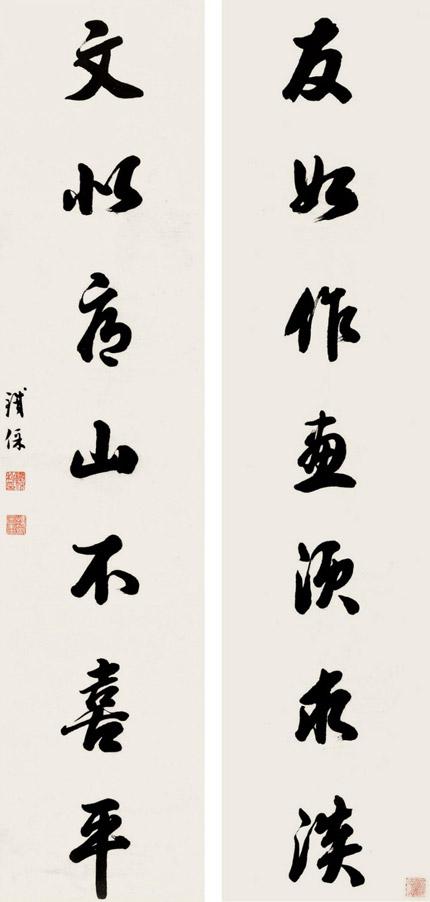 友如作畫須求淡
文似看山不喜平
鐵保